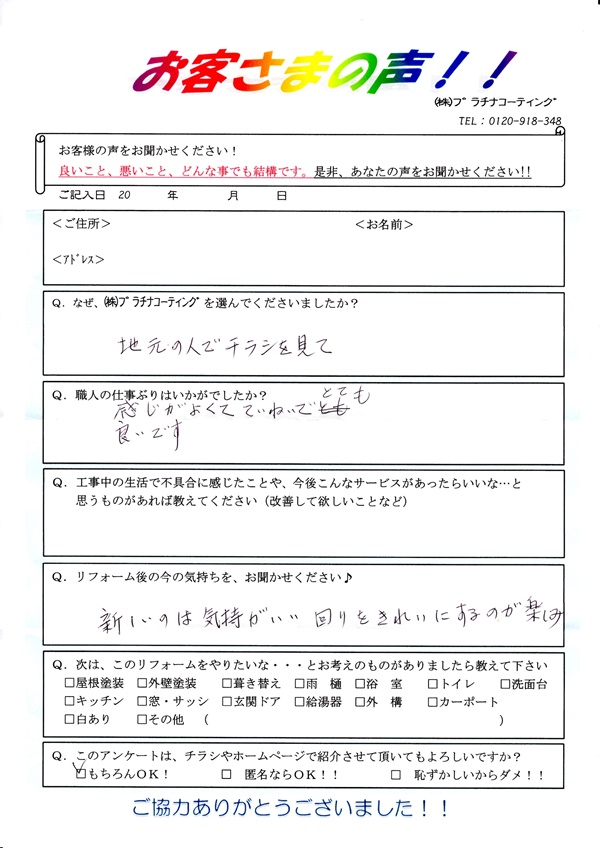 お客さまの声！！
㈱ﾌﾟﾗﾁﾅｺｰﾃｨﾝｸﾞ
TEL：0120-918-348
お客様の声をお聞かせください！
良いこと、悪いこと、どんな事でも結構です。是非、あなたの声をお聞かせください!!
ご記入日 20 年 月 日
＜ご住所＞ ＜お名前＞
＜ｱﾄﾞﾚｽ＞
Q．なぜ、㈱ﾌﾟﾗﾁﾅｺｰﾃｨﾝｸﾞを選んでくださいましたか？
地元の人でチラシを見て
Q．職人の仕事ぶりはいかがでしたか？
感じがよくて ていねいで とても
良いです
Q．工事中の生活で不具合に感じたことや、今後こんなサービスがあったらいいな…と
思うものがあれば教えてください（改善して欲しいことなど）
Q．リフォーム後の今の気持ちを、お聞かせください♪
新しいのは気持がいい 回りをきれいにするのが楽しみ
Q．次は、このリフォームをやりたいな・・・とお考えのものがありましたら教えて下さい
□屋根塗装 □外壁塗装 □葺き替え □雨 樋 □浴 室 □トイレ □洗面台
□キッチン □窓・サッシ □玄関ドア □給湯器 □外 構 □カーポート
□白あり □その他 （ ）
Q．このアンケートは、チラシやホームページで紹介させて頂いてもよろしいですか？
☑もちろんOK！ □ 匿名ならOK！！ □ 恥ずかしいからダメ！！
ご協力ありがとうございました！！